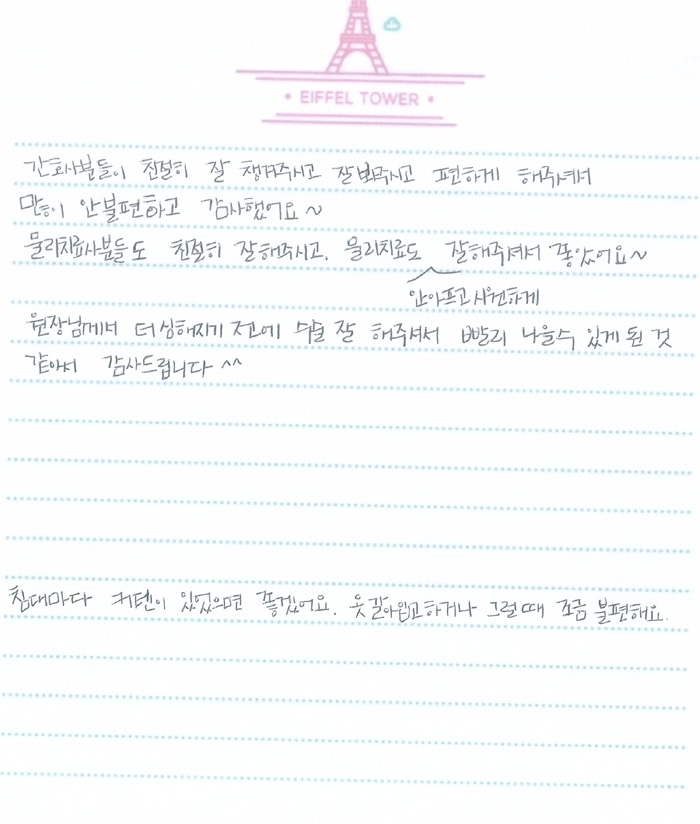 • EIFFEL TOWER •
간호사분들이 친절히 잘 챙겨주시고 잘봐주시고 편하게 해주셔서
많이 안불편하고 감사했어요~
물리치료사분들도 친절히 잘해주시고. 물리치료도 잘해주셔서 좋았어요~
안아프고시원하게
원장님께서 더심해지기 전에 수술 잘 해주셔서 빨리 나을수 있게 된 것
같아서 감사드립니다 ^^
침대마다 커텐이 있었으면 좋겠어요. 옷갈아입고하거나 그럴때 조금 불편해요.